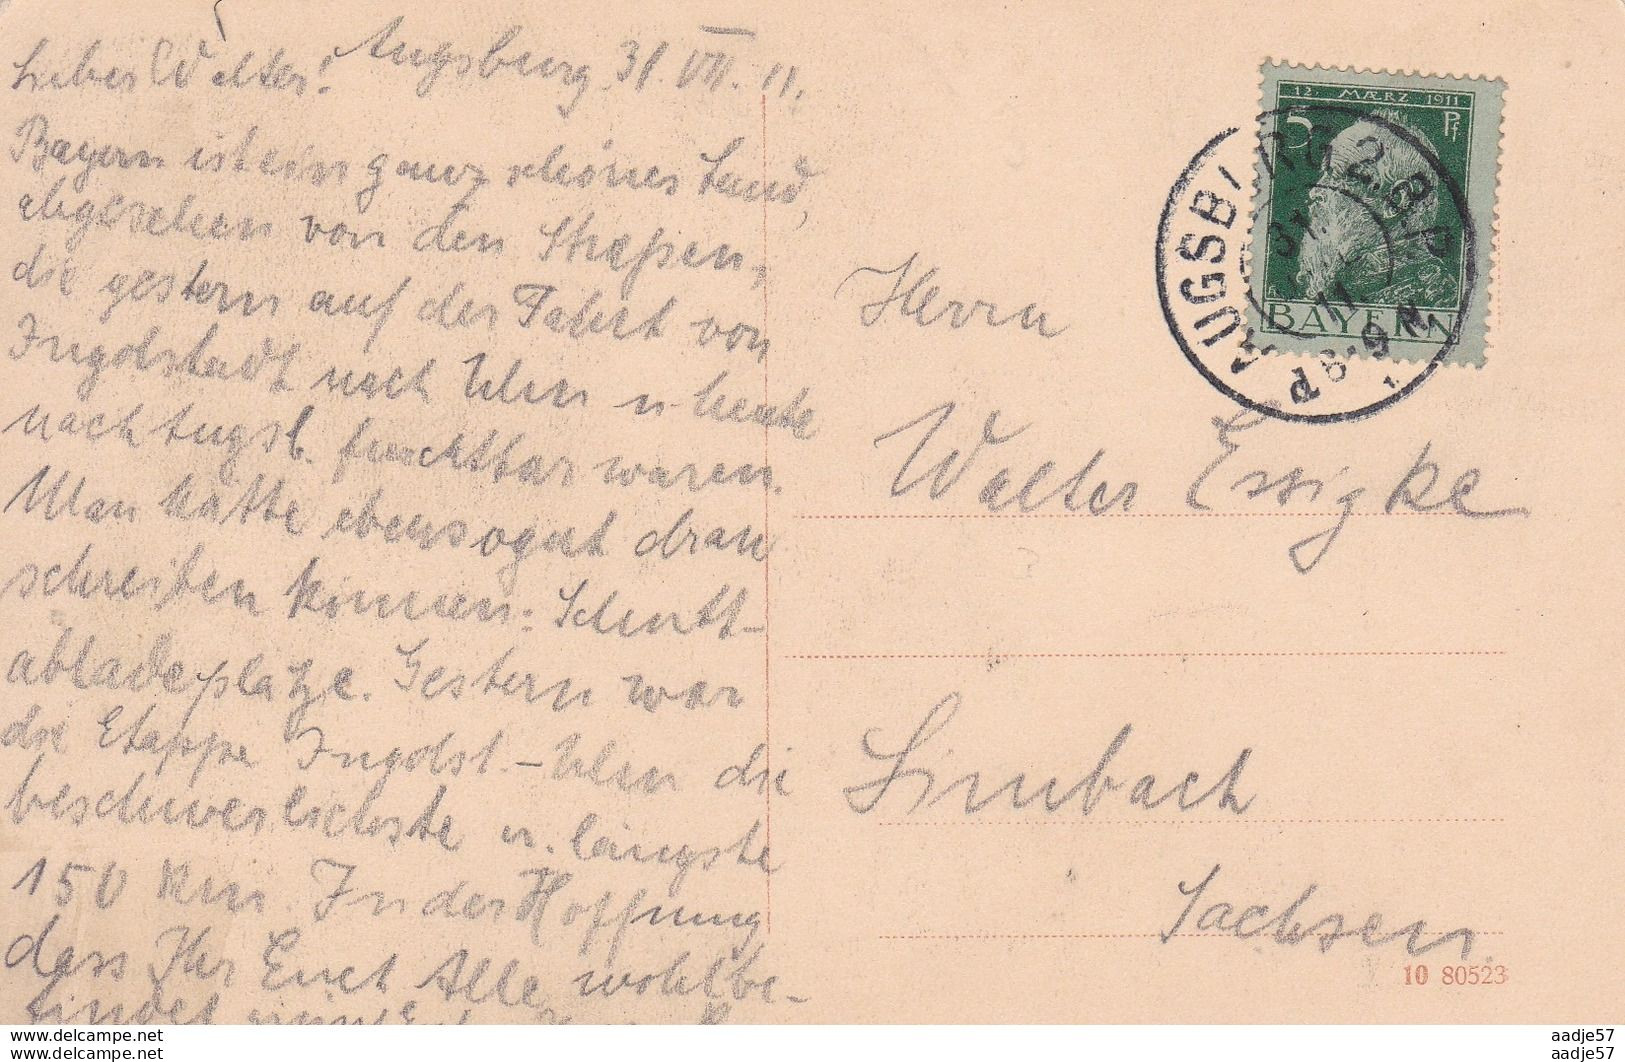 Augsburg 31. VII. 11.
Lieber Walter!
Bayern ist ein ganz schönes Land,
abgesehen von den Straßen,
die gestern auf der Fahrt von
Ingolstadt nach Ulm u. heute
nach Augsb. furchtbar waren.
Man hätte ebensogut dran
schreiben können: Schutt-
abladeplätze. Gestern war
die Etappe Ingolst.-Ulm die
beschwerlichste u. längste
150 km. In der Hoffnung
dass Ihr Euch Alle wohlbe-
findet
12. MÆRZ 1911
5 Pf
BAYERN
AUGSBURG 2. B.P.
31.
11.
8-9 N.
Herrn
Walter Essigke
Limbach
Sachsen.
10 80523
www.delcampe.net aadje57
www.delcampe.net aadje57